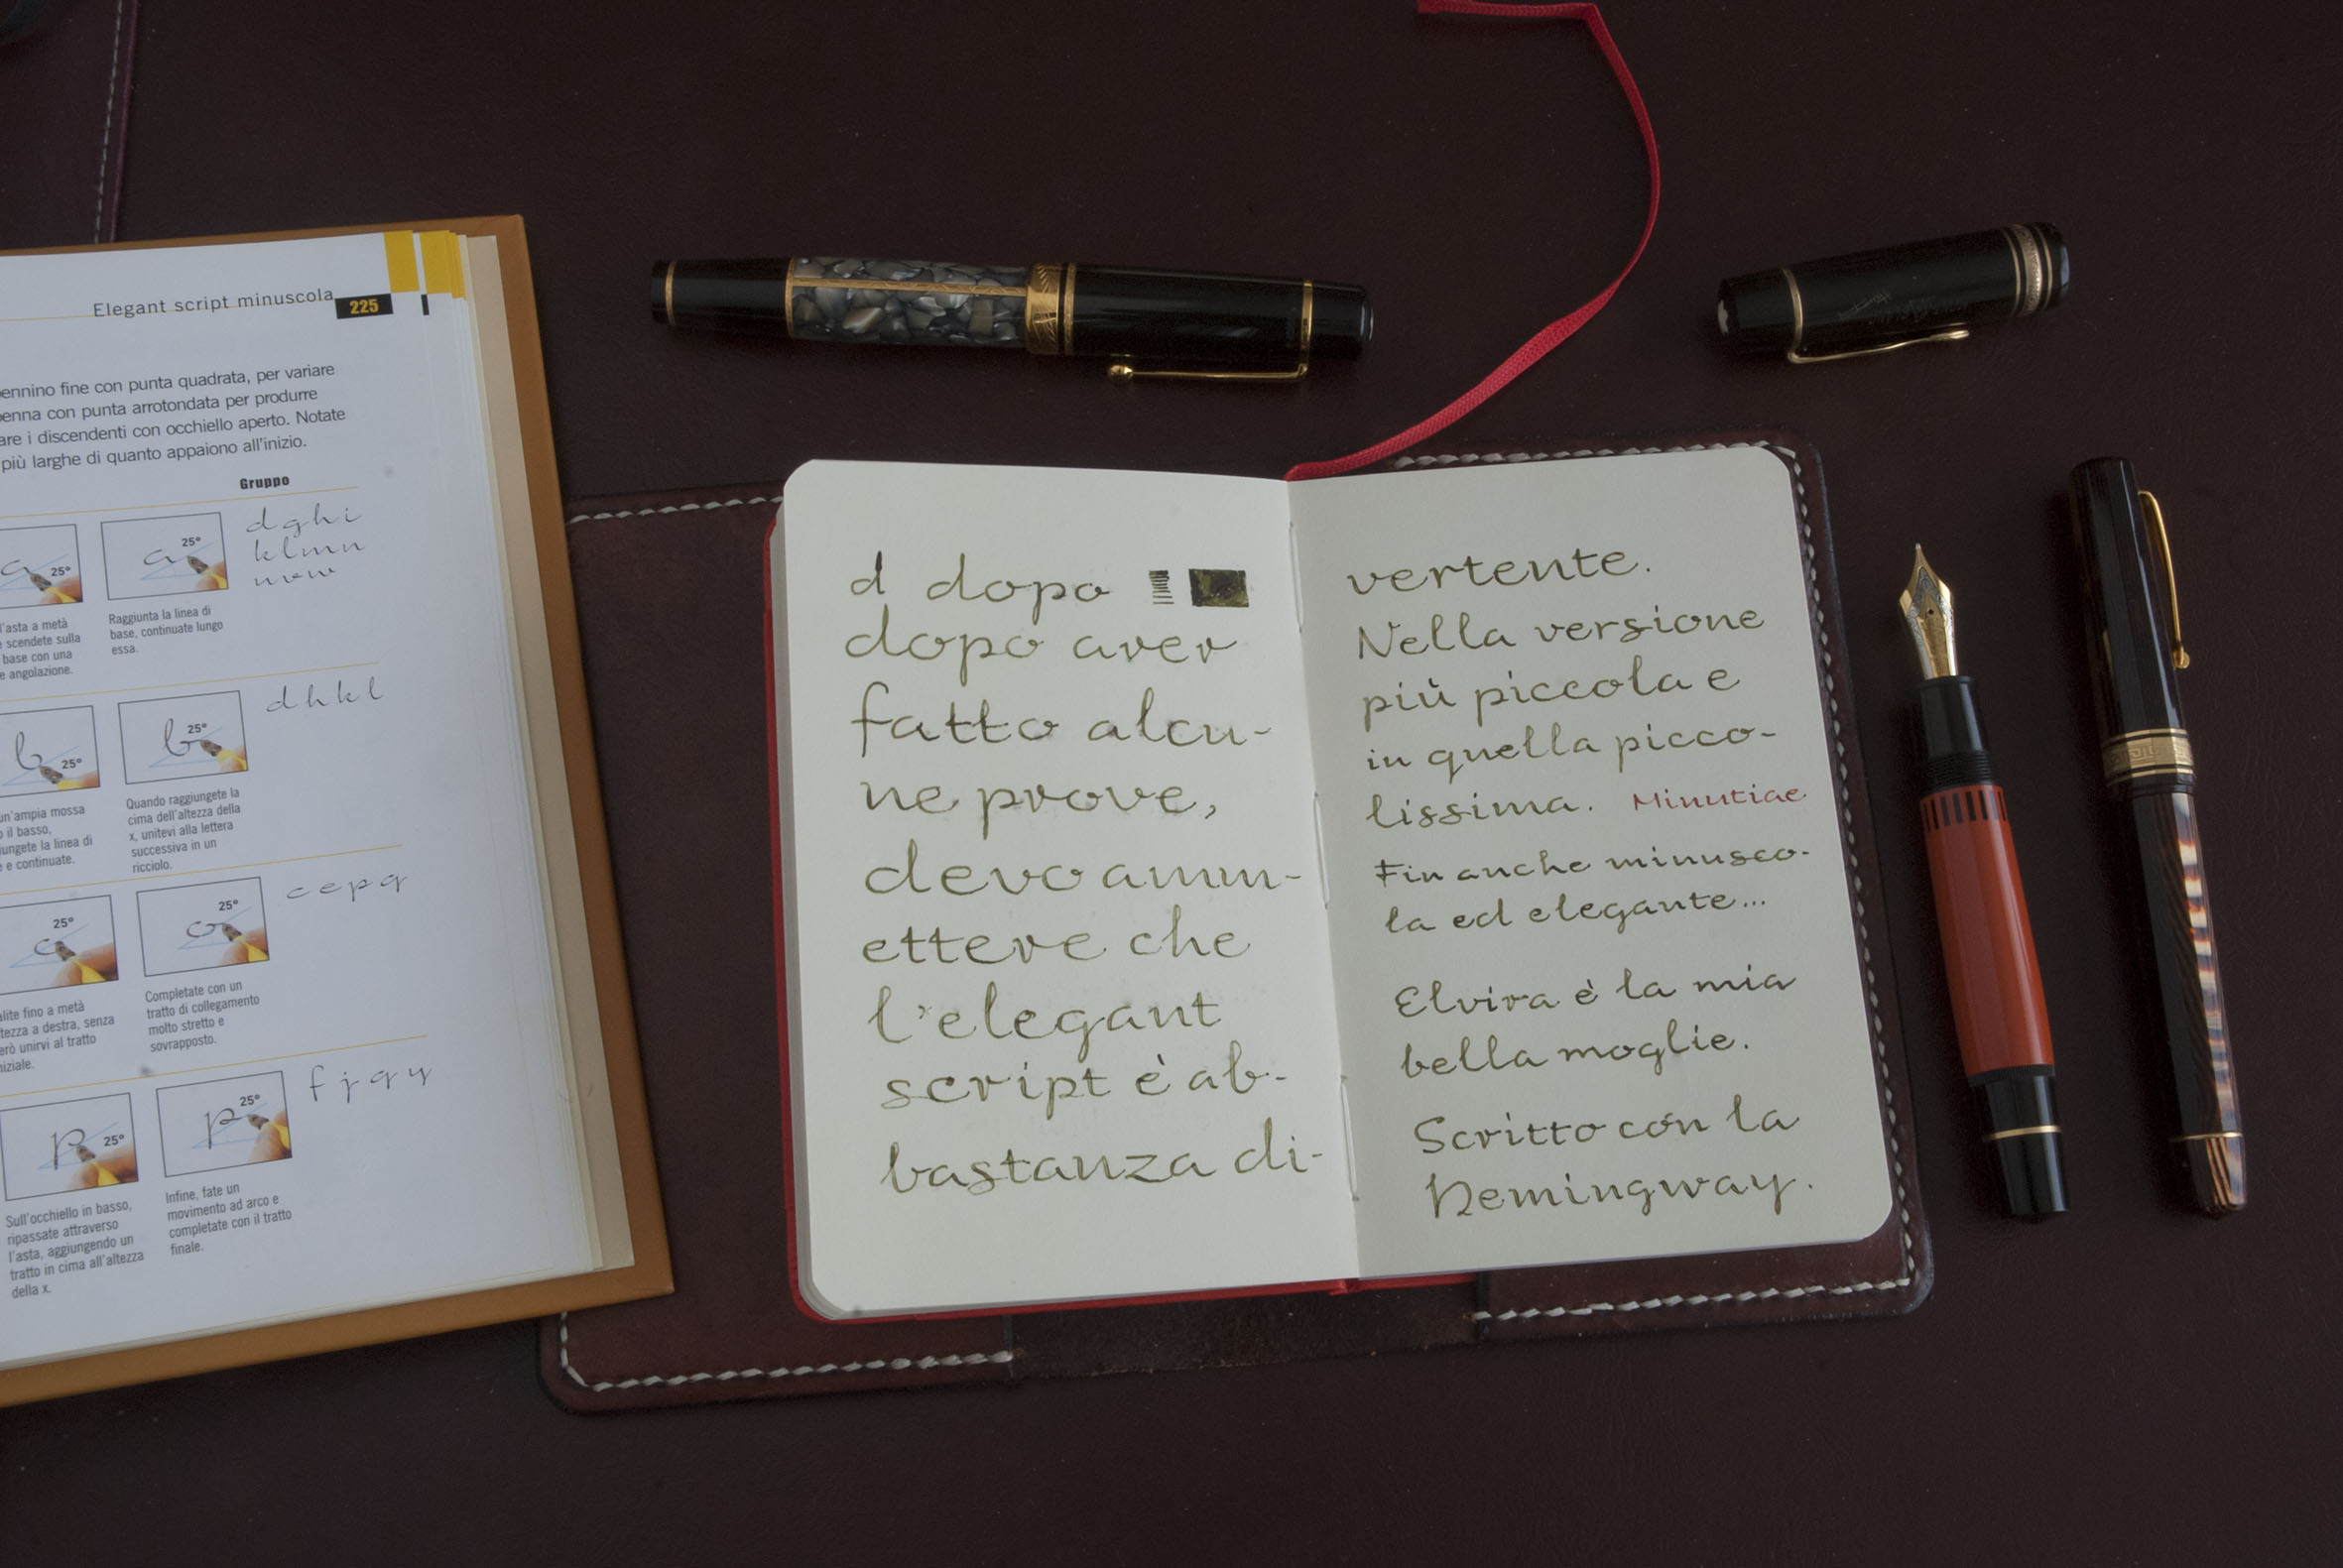 Elegant script minuscola 225
pennino fine con punta quadrata, per variare
penna con punta arrotondata per produrre
are i discendenti con occhiello aperto. Notate
più larghe di quanto appaiono all'inizio.
Gruppo
d g h i
k l m n
25°
25°
l'asta a metà
e scendete sulla
base con una
e angolazione.
Raggiunta la linea di
base, continuate lungo
essa.
d h k l
25°
25°
un'ampia mossa
o il basso,
iungete la linea di
e e continuate.
Quando raggiungete la
cima dell'altezza della
x, unitevi alla lettera
successiva in un
ricciolo.
c e p q
25°
25°
alite fino a metà
tezza a destra, senza
erò unirvi al tratto
niziale.
Completate con un
tratto di collegamento
molto stretto e
sovrapposto.
f j g y
25°
25°
Sull'occhiello in basso,
ripassate attraverso
l'asta, aggiungendo un
tratto in cima all'altezza
della x.
Infine, fate un
movimento ad arco e
completate con il tratto
finale.
d dopo
dopo aver
fatto alcu-
ne prove,
devo amm-
ettere che
l'elegant
script è ab-
bastanza di-
vertente.
Nella versione
più piccola e
in quella picco-
lissima. Minutiae
Fin anche minusco-
la ed elegante...
Elvira è la mia
bella moglie.
Scritto con la
Hemingway.